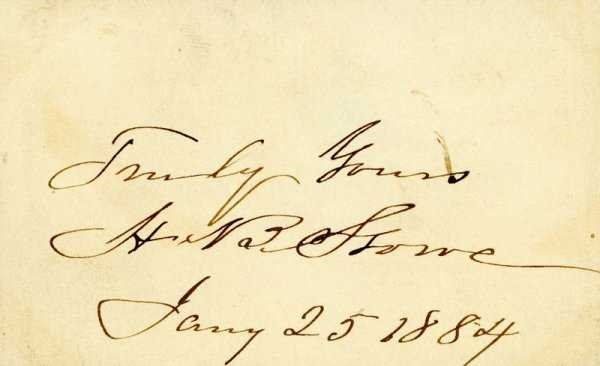 Truly Yours
H B Stowe
Jany 25 1884